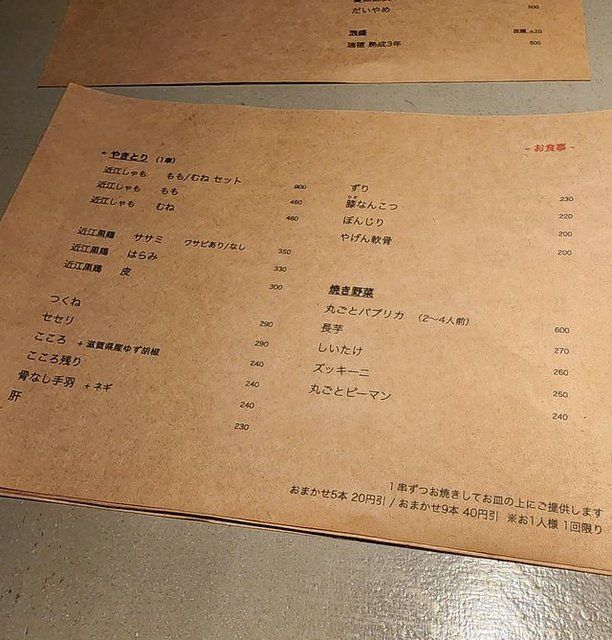 だいやめ 500
泡盛
瑞穂 熟成3年 600
- お食事 -
- やきとり (1串)
近江しゃも もも/むね セット 900
近江しゃも もも 460
近江しゃも むね 460
近江黒鶏 ササミ ワサビあり/なし 350
近江黒鶏 はらみ 330
近江黒鶏 皮 300
つくね 290
セセリ 290
こころ +滋賀県産ゆず胡椒 240
こころ残り 240
骨なし手羽 +ネギ 240
肝 230
ずり 230
膝なんこつ 220
ぼんじり 200
やげん軟骨 200
焼き野菜
丸ごとパプリカ (2〜4人前) 600
長芋 270
しいたけ 260
ズッキーニ 250
丸ごとピーマン 240
1串ずつお焼きしてお皿の上にご提供します
おまかせ5本 20円引 / おまかせ9本 40円引 ※お1人様 1回限り